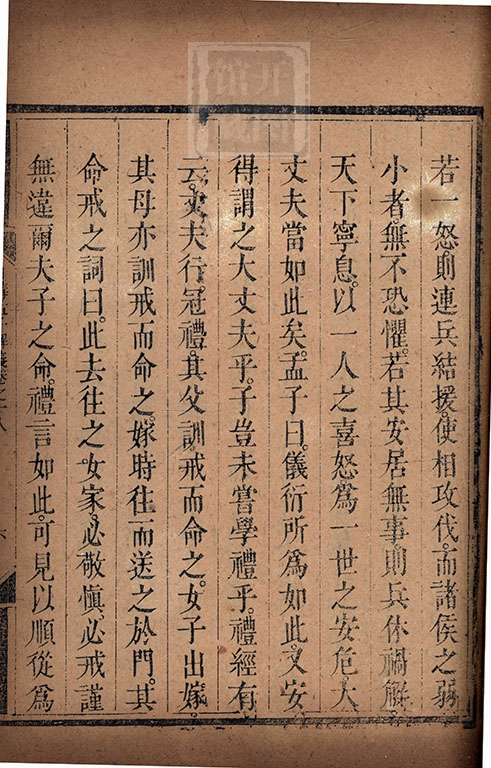 若一怒則連兵結援使相攻伐而諸侯之弱
小者無不恐懼若其安居無事則兵休禍解
天下寧息以一人之喜怒為一世之安危大
丈夫當如此矣孟子曰儀衍所為如此又安
得謂之大丈夫乎子豈未嘗學禮乎禮經有
云丈夫行冠禮其父訓戒而命之女子出嫁
其母亦訓戒而命之嫁時往而送之於門其
命戒之詞曰此去往之女家必敬慎必戒謹
無違爾夫子之命禮言如此可見以順從為